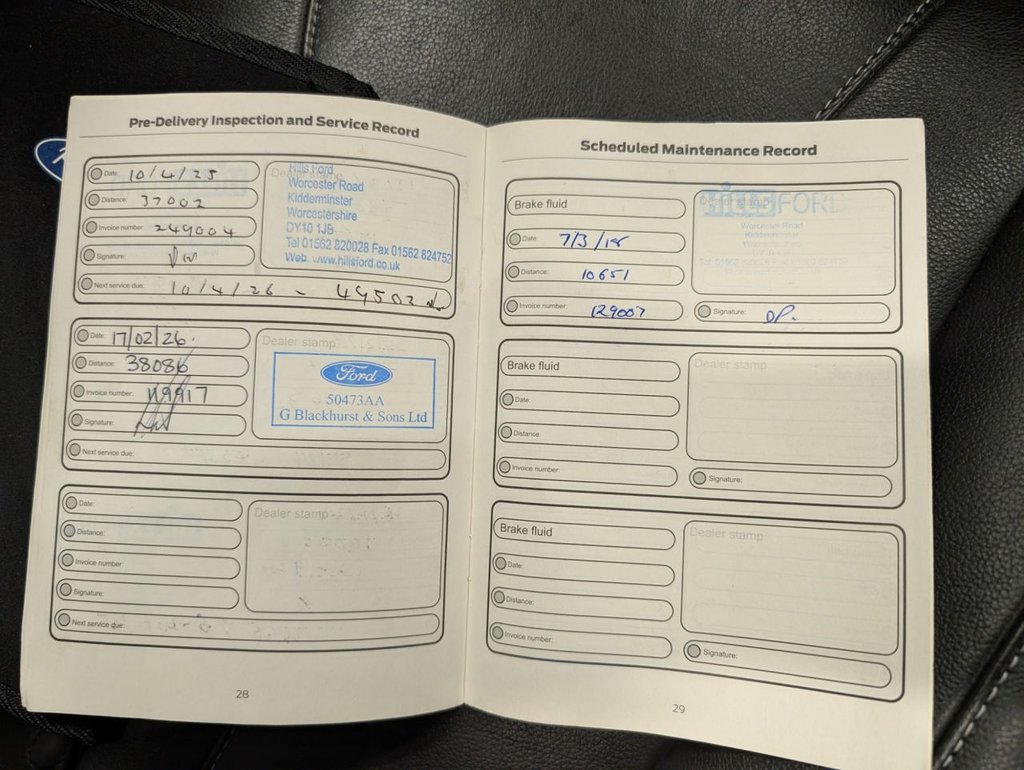 Pre-Delivery Inspection and Service Record
Date: 10/4/25
Distance: 37002
Invoice number: 249004
Signature:
Next service due: 10/4/26 - 49502
Hills Ford
Worcester Road
Kidderminster
Worcestershire
DY10 1JB
Tel 01562 820028 Fax 01562 824752
Web. www.hillsford.co.uk
Date: 17/02/26.
Distance: 38086
Invoice number: 119917
Signature:
Next service due:
Dealer stamp
Ford
50473AA
G Blackhurst & Sons Ltd
Date:
Distance:
Invoice number:
Signature:
Next service due:
Dealer stamp
28
Scheduled Maintenance Record
Brake fluid
Date: 7/3/18
Distance: 10651
Invoice number: 129007
FORD
Worcester Road
Signature: DP.
Brake fluid
Date:
Distance:
Invoice number:
Dealer stamp
Signature:
Brake fluid
Date:
Distance:
Invoice number:
Dealer stamp
Signature:
29